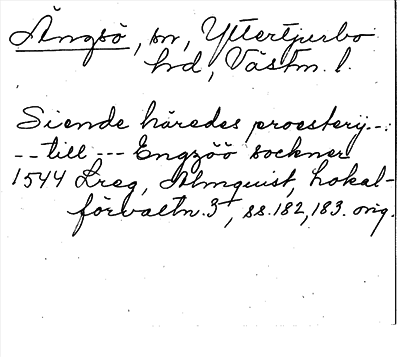 Ängsö, sn, Yttertjurbo
hd, Västm. l.
Siende häredes proesterij--:
--till --- Engzöö sockner
1544 Lreg, Almquist, Lokal-
förvaltn. 3, ss. 182, 183. orig.